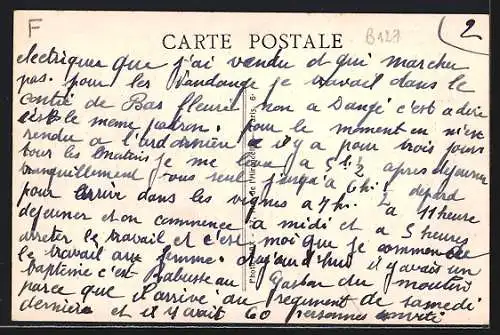 F
2
CARTE POSTALE
B127
electrique que j'ai vendu et qui marcher
pas. pour les Vandange je travail dans le
contré de Bas fleurie non a Dangé c'est a dire
le meme patron. pour le moment en n'est
rendu a l' il y a pour trois jours
tour les matin je me leve a 5 h 1/2 apres dejeuner
tranquillement tous seul jusqu'a 6 h 1/2 depard
pour arrive dans les vignes a 7 h. a 11 heure
dejeuner et on commence a midi et a 5 heures
arreter le travail et c'est moi que je commence
le travail aux femme. aujourd'hui il y avais un
baptème c'est Rabusseau Gaston du moulin
parce que il arrive du regiment de samedi
dernière et il y avait 60 personnes invité